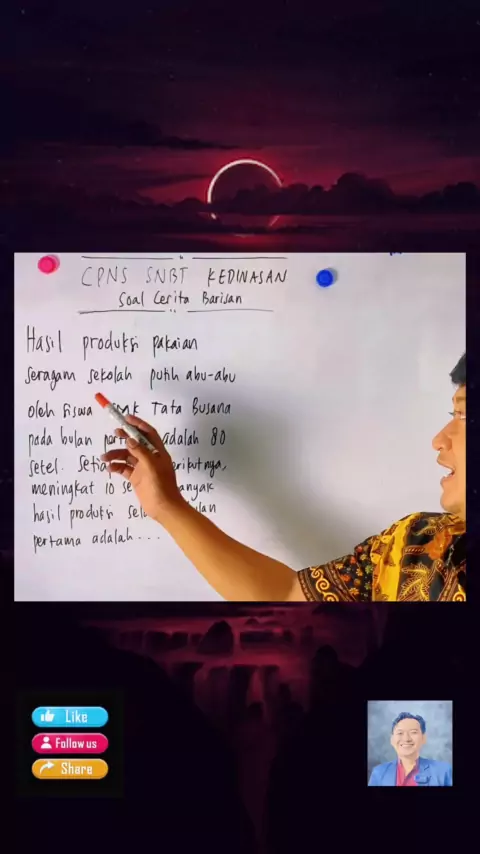 CPNS SNBT KEDINASAN
Soal Cerita Barisan
Hasil produksi pakaian
seragam sekolah putih abu-abu
oleh siswa Tata Busana
pada bulan adalah 80
setel. Setiap
meningkat 10
hasil produksi
pertama adalah...
Like
Follow us
Share